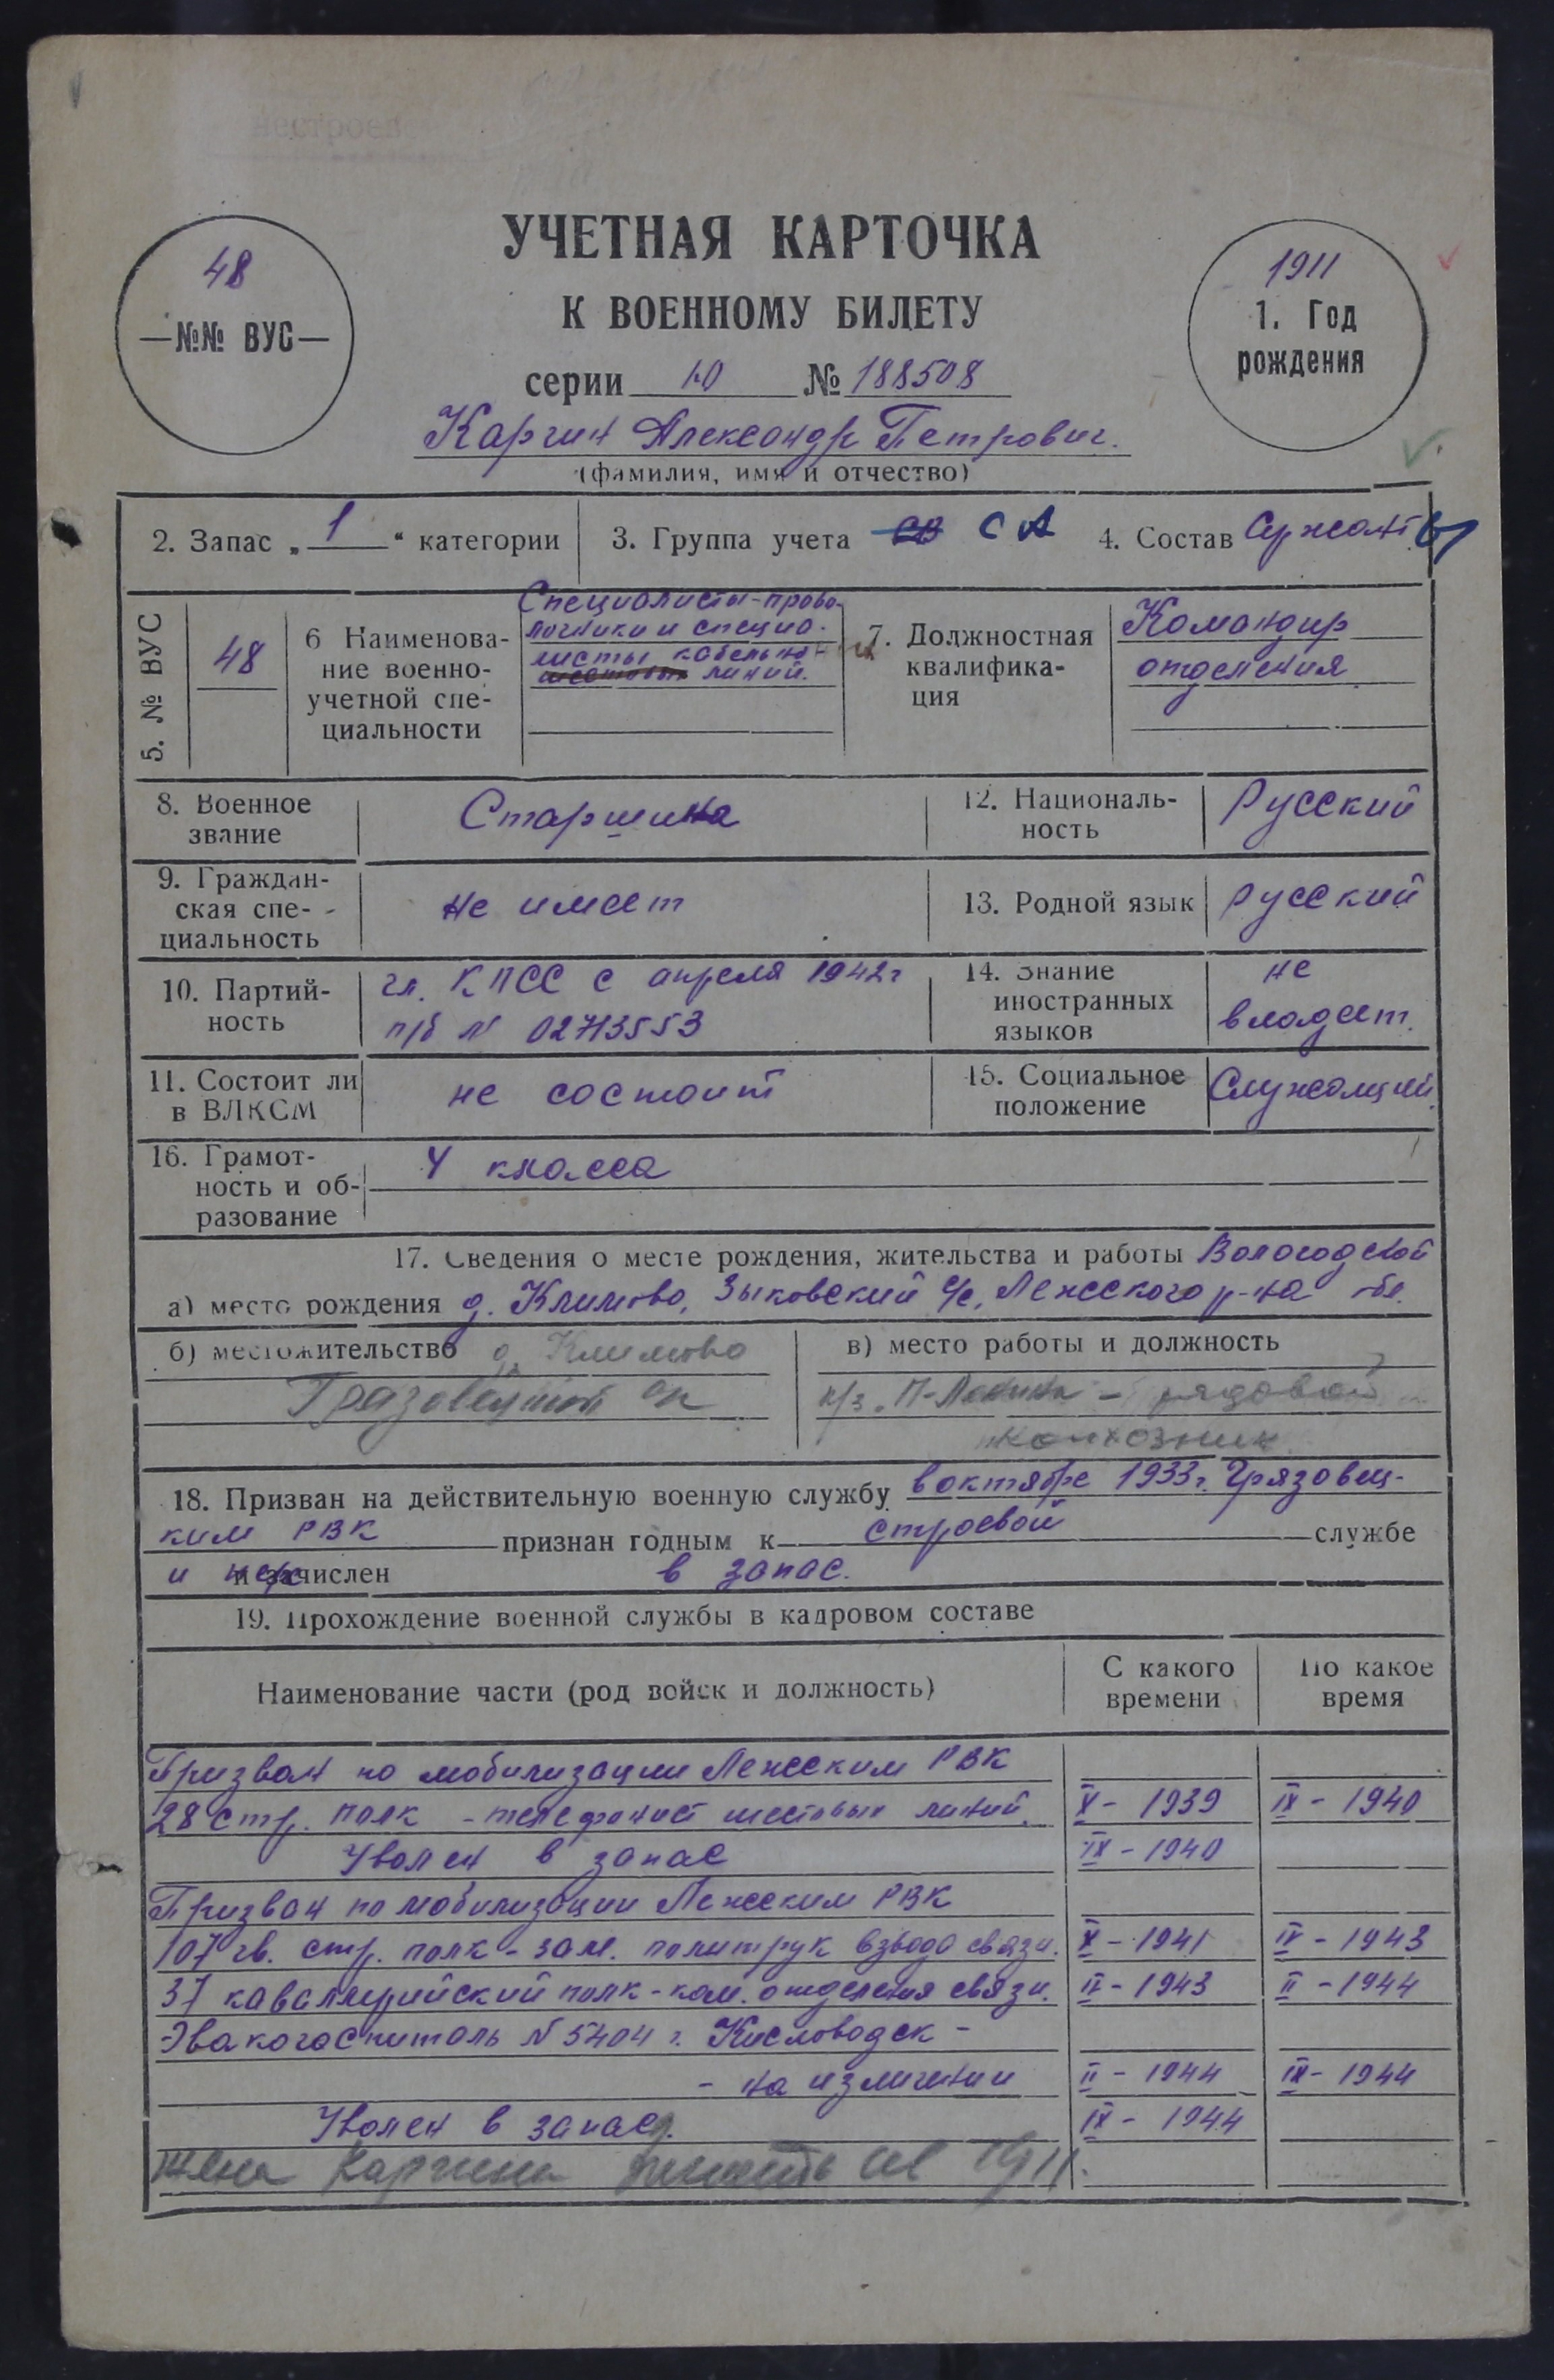 УЧЕТНАЯ КАРТОЧКА
К ВОЕННОМУ БИЛЕТУ
48
—№№ ВУС—
1911
1. Год
рождения
серии Ю № 188508
Каргин Александр Петрович.
(фамилия, имя и отчество)
2. Запас „1“ категории
3. Группа учета СА
4. Состав Сержанты
5. № ВУС
48
6 Наименова-
ние военно-
учетной спе-
циальности
Специалисты-прово-
лочники и специа-
листы кабельных
линий.
7. Должностная
квалифика-
ция
Командир
отделения
8. Военное
звание
Старшина
12. Националь-
ность
Русский
9. Граждан-
ская спе-
циальность
не имеет
13. Родной язык
русский
10. Партий-
ность
чл. КПСС с апреля 1942г
п/б № 02713553
14. Знание
иностранных
языков
не
владеет.
11. Состоит ли
в ВЛКСМ
не состоит
15. Социальное
положение
Служащий.
16. Грамот-
ность и об-
разование
4 класса
17. Сведения о месте рождения, жительства и работы Вологодской
а) место рождения д. Климово, Зыковский с/с, Лежского р-на обл.
б) местожительство д. Климово
Грязовецкий
в) место работы и должность
к/з. Ленина - рядовой
колхозник
18. Призван на действительную военную службу в октябре 1933г. Грязовец-
ким РВК признан годным к строевой службе
и зачислен в запас.
19. Прохождение военной службы в кадровом составе
Наименование части (род войск и должность)
С какого
времени
По какое
время
Призван по мобилизации Лежским РВК
28 стр. полк - телефонист шестовых линий. X - 1939 IX - 1940
Уволен в запас IX - 1940
Призван по мобилизации Лежским РВК
107 гв. стр. полк - зам. политрук взвода связи. X - 1941 IV - 1943
37 кавалерийский полк - ком. отделения связи. IV - 1943 II - 1944
Эвакогоспиталь № 5404 г. Кисловодск -
- на излечении II - 1944 IX - 1944
Уволен в запас. IX - 1944
жена Каргина 1911.